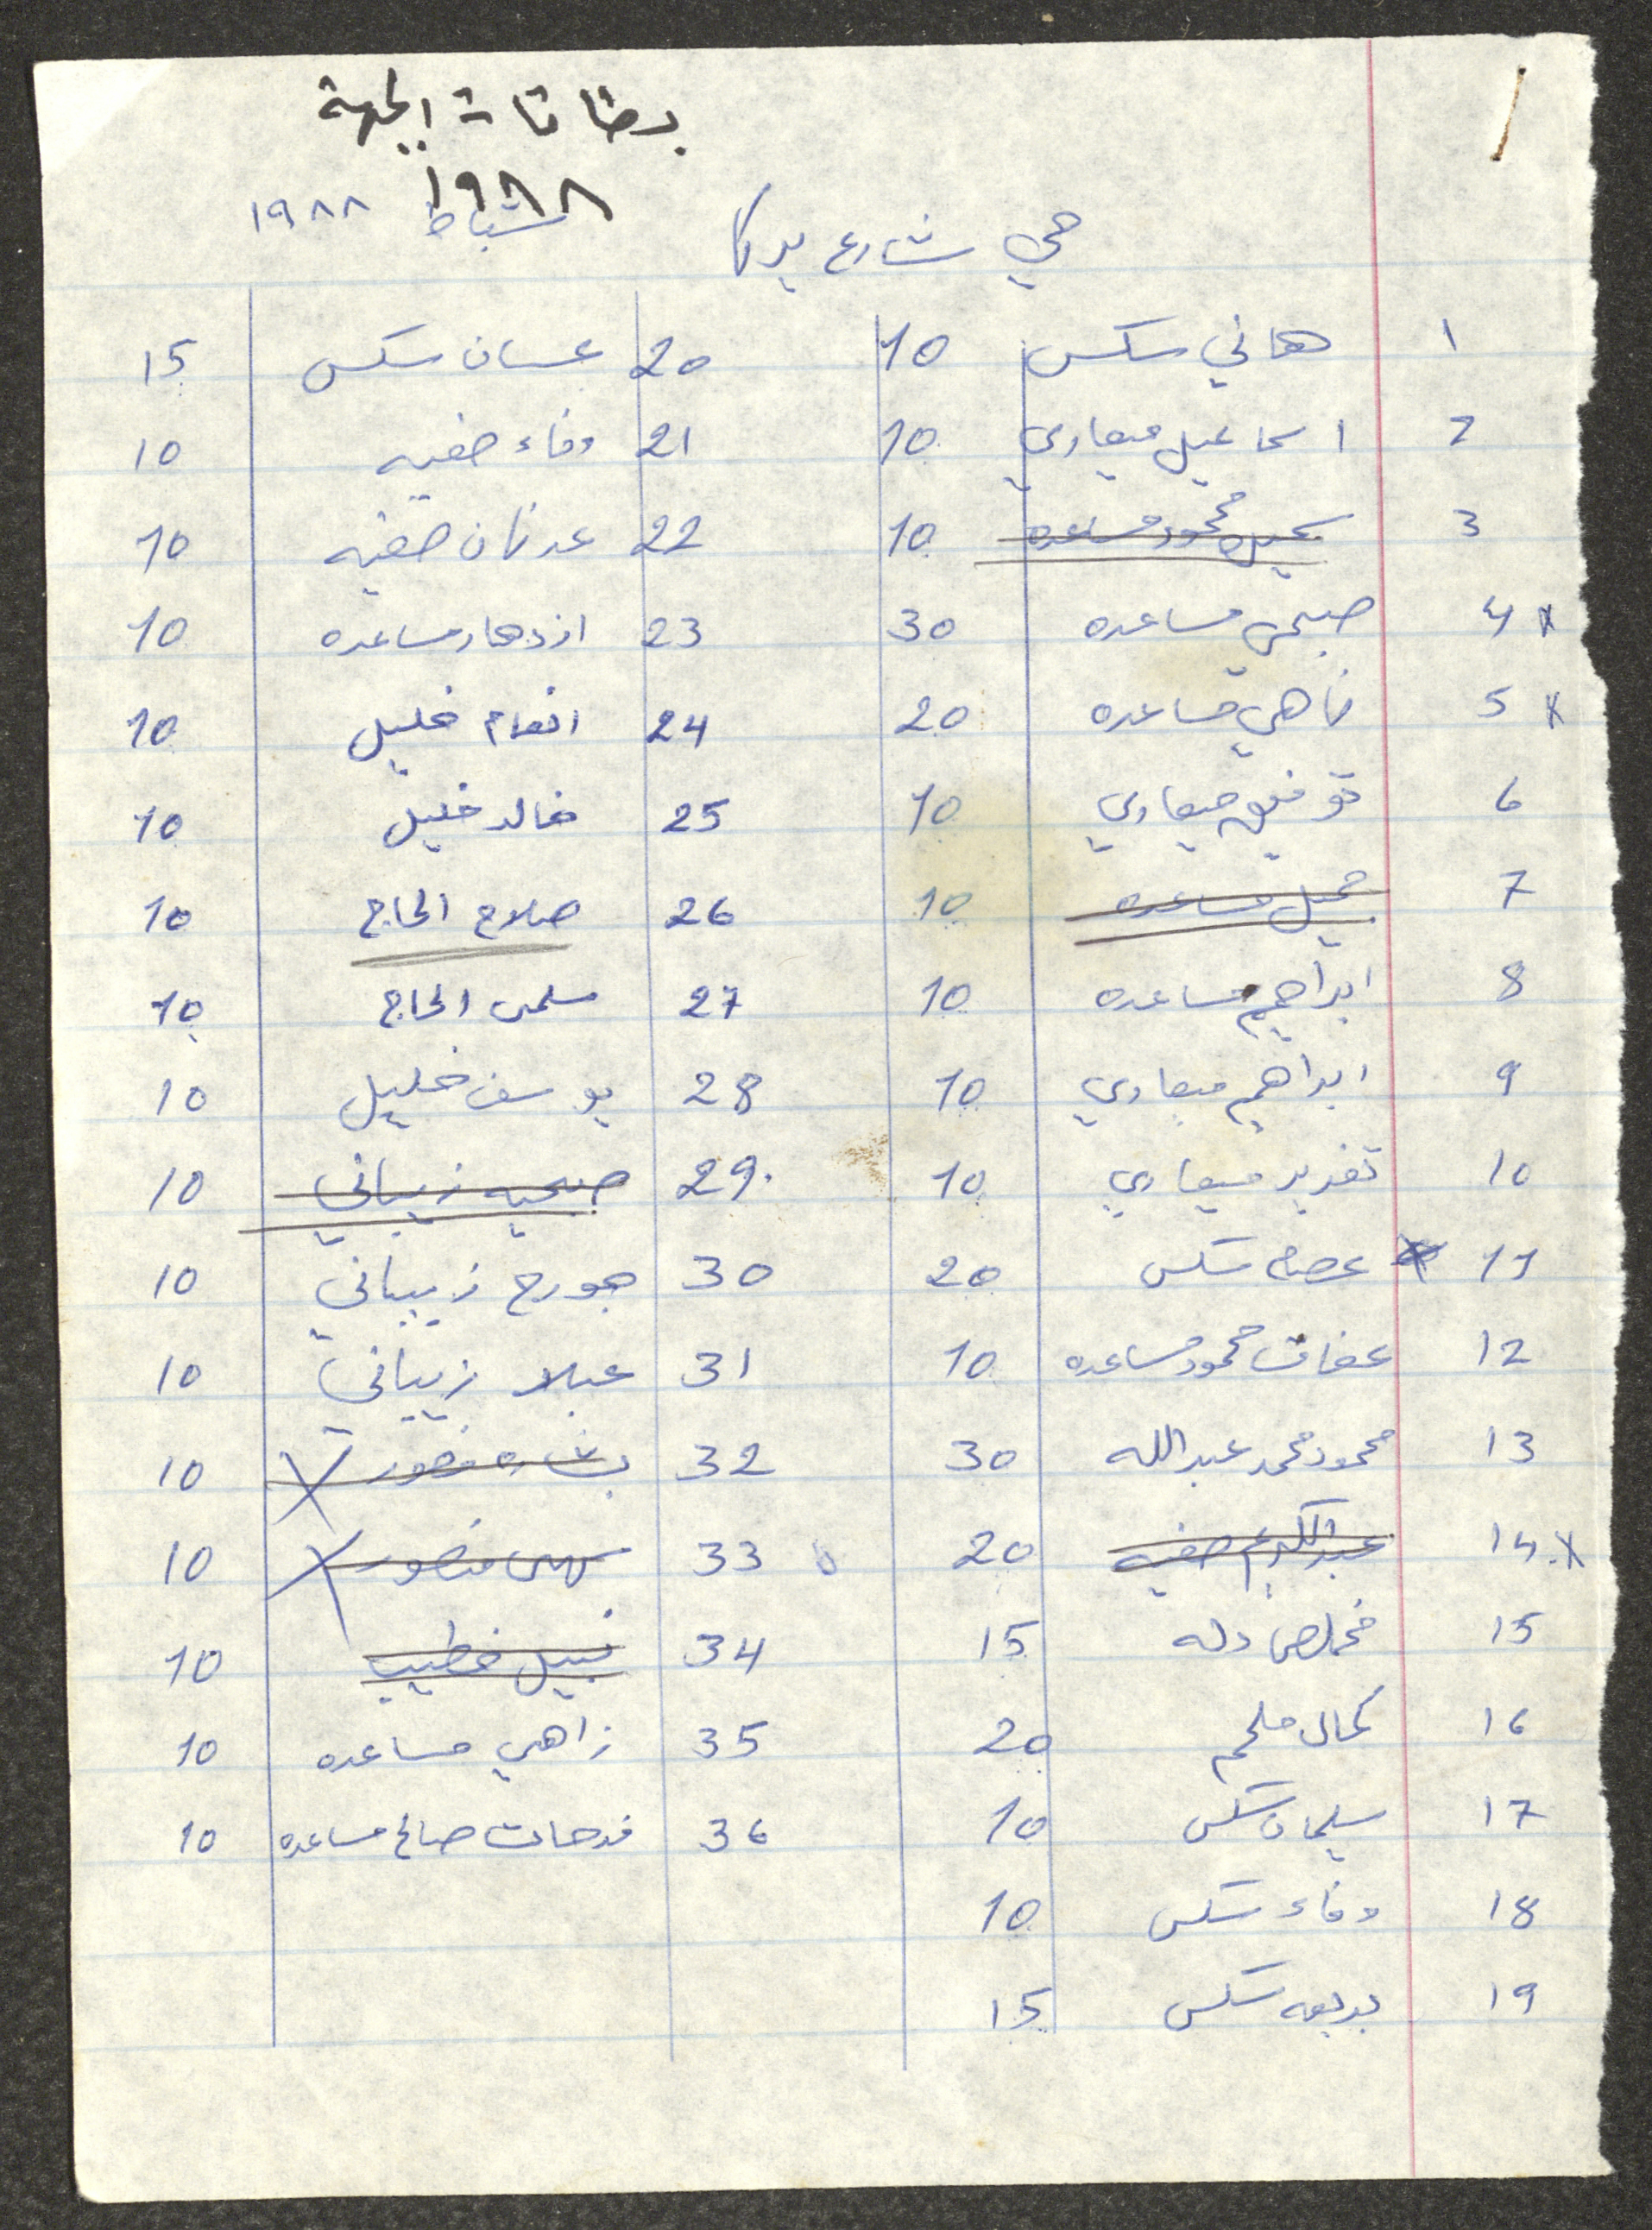 بطاقات الجبهة
١٩٨٨
شباط ١٩٨٨
حي شارع يركا
1 هاني سكس 10
2 اسماعيل ميعاري 10
3 محمود مساعده 10
4 x صبحي مساعده 30
5 x ناهي مساعده 20
6 توفيق ميعاري 10
7 جميل مساعده 10
8 ابراهيم مساعده 10
9 ابراهيم ميعاري 10
10 تغريد ميعاري 10
11 عصام سكس 20
12 عفاف محمود مساعده 10
13 محمود محمد عبدالله 30
14 x عبدالكريم صفيه 20
15 مخلص دله 15
16 كمال ملحم 20
17 سليمان سكس 10
18 وفاء سكس 10
19 بديعه سكس 15
20 غسان سكس 15
21 وفاء صفيه 10
22 عدنان صفيه 10
23 ازدهار مساعده 10
24 انعام خليل 10
25 خالد خليل 10
26 صلاح الحاج 10
27 سلمى الحاج 10
28 يوسف خليل 10
29 صبحيه زيباني 10
30 جورج زيباني 10
31 عبلا زيباني 10
32 بشاره منصور 10
33 سهى منصور 10
34 نبيل خطيب 10
35 زاهي مساعده 10
36 فرحات صالح مساعده 10